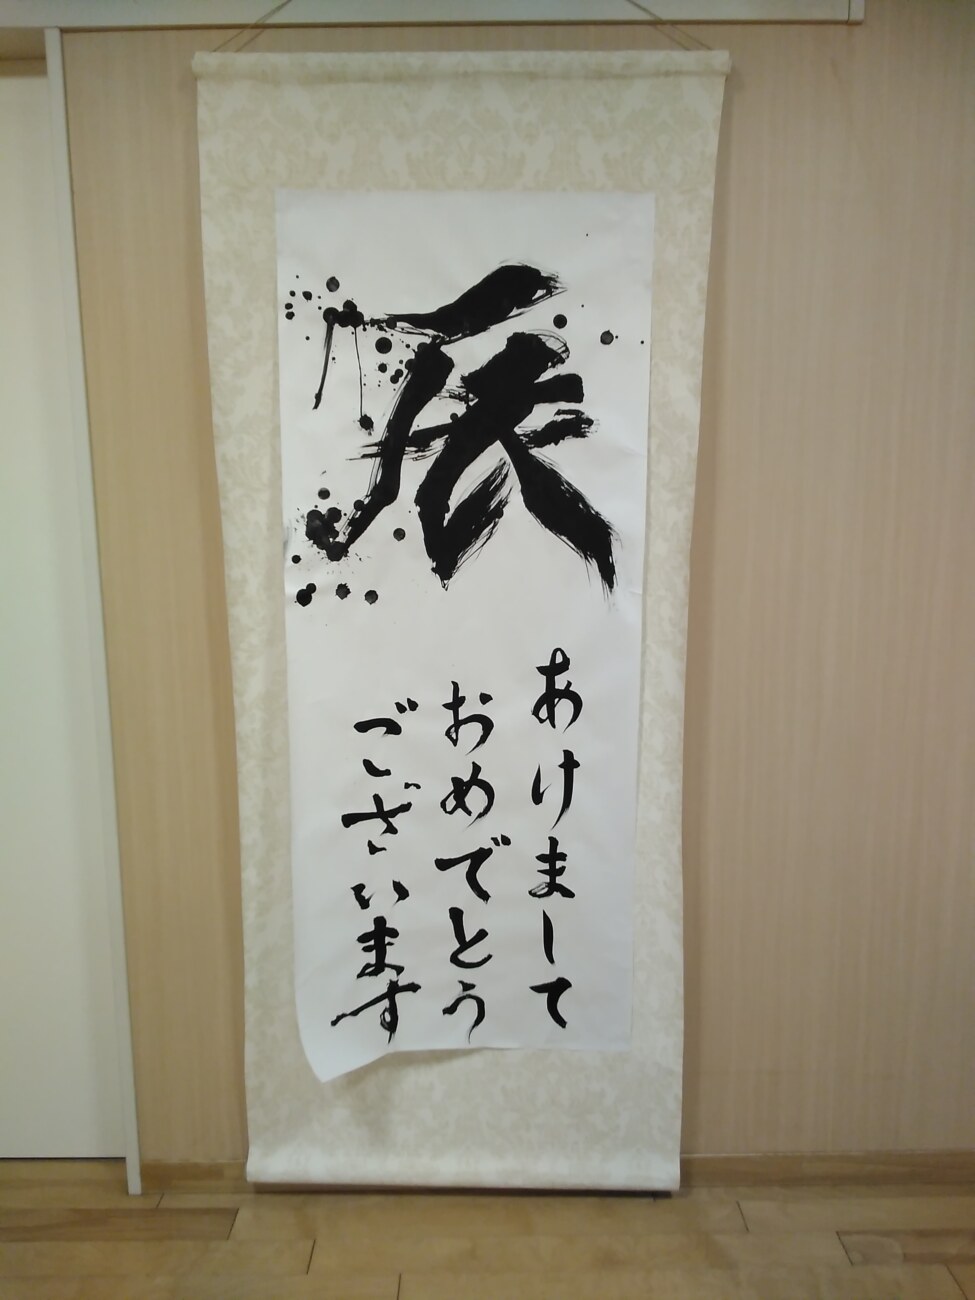 辰
あけまして
おめでとう
ございます